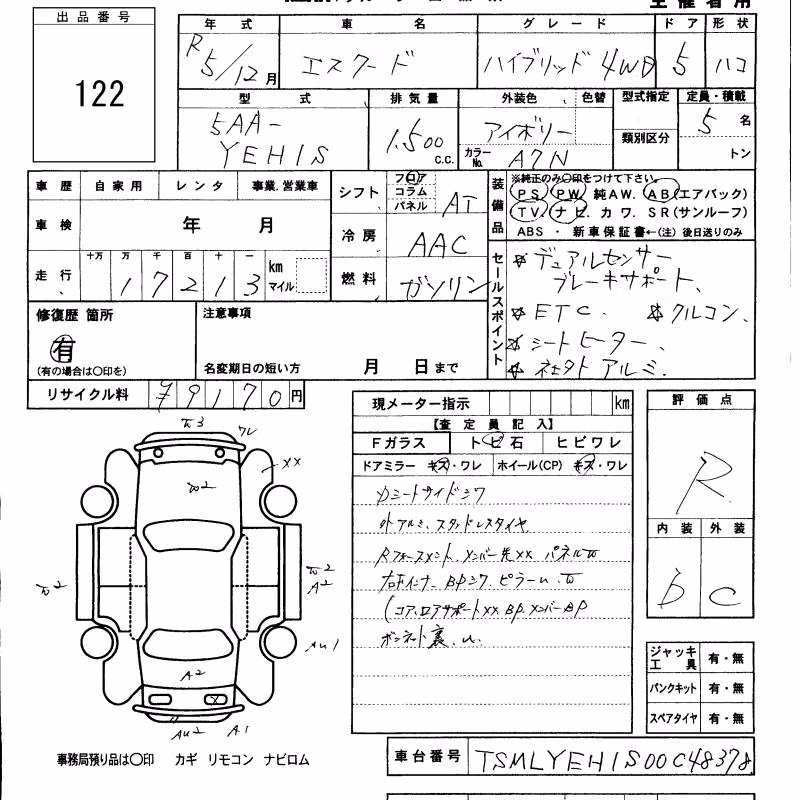 出品番号
122
年式 車名 グレード ドア 形状
R5/12月 エスクード ハイブリッド 4WD 5 ハコ
型式 排気量 外装色 色替 型式指定 定員・積載
5AA-
YEH1S
1.500 C.C.
アイボリー
カラーNo. A7N
類別区分
5名
トン
車歴 自家用 レンタ 事業.営業車
車検 年 月
走行 十万 万 千 百 十 一
17213 km マイル
シフト フロア コラム パネル AT
冷房 AAC
燃料 ガソリン
装備品
※純正のみ〇印をつけて下さい。
PS PW 純AW. AB(エアバック)
TV. ナビ. カワ. SR(サンルーフ)
ABS ・ 新車保証書←(注) 後日送りのみ
セールスポイント
☆ デュアルセンサー
ブレーキサポート、
☆ ETC. ☆ クルコン、
☆ シートヒーター、
☆ 社外アルミ.
修復歴 箇所
有
(有の場合は〇印を)
注意事項
名変期日の短い方 月 日まで
リサイクル料 ¥9170円
現メーター指示 km
【査定員記入】
Fガラス トビ石 ヒビワレ
ドアミラー キズ・ワレ ホイール(CP) キズ・ワレ
Dシートサイドシワ
外アルミ、スタッドレスタイヤ
Rフォースメント、メンバー先XX パネルW
右Fインナ BPシワ. ピラーU、W
(コア、ロアサポートXX BP. メンバーBP
ボンネット裏、U.
評価点
R
内装 外装
B C
W3 ワレ
XX
W2
W2
W2
A2
AU1
A2
X
AU2 A1
ジャッキ工具 有・無
パンクキット 有・無
スペアタイヤ 有・無
事務局預り品は〇印 カギ リモコン ナビロム
車台番号 TSMLYEH1S00C48378